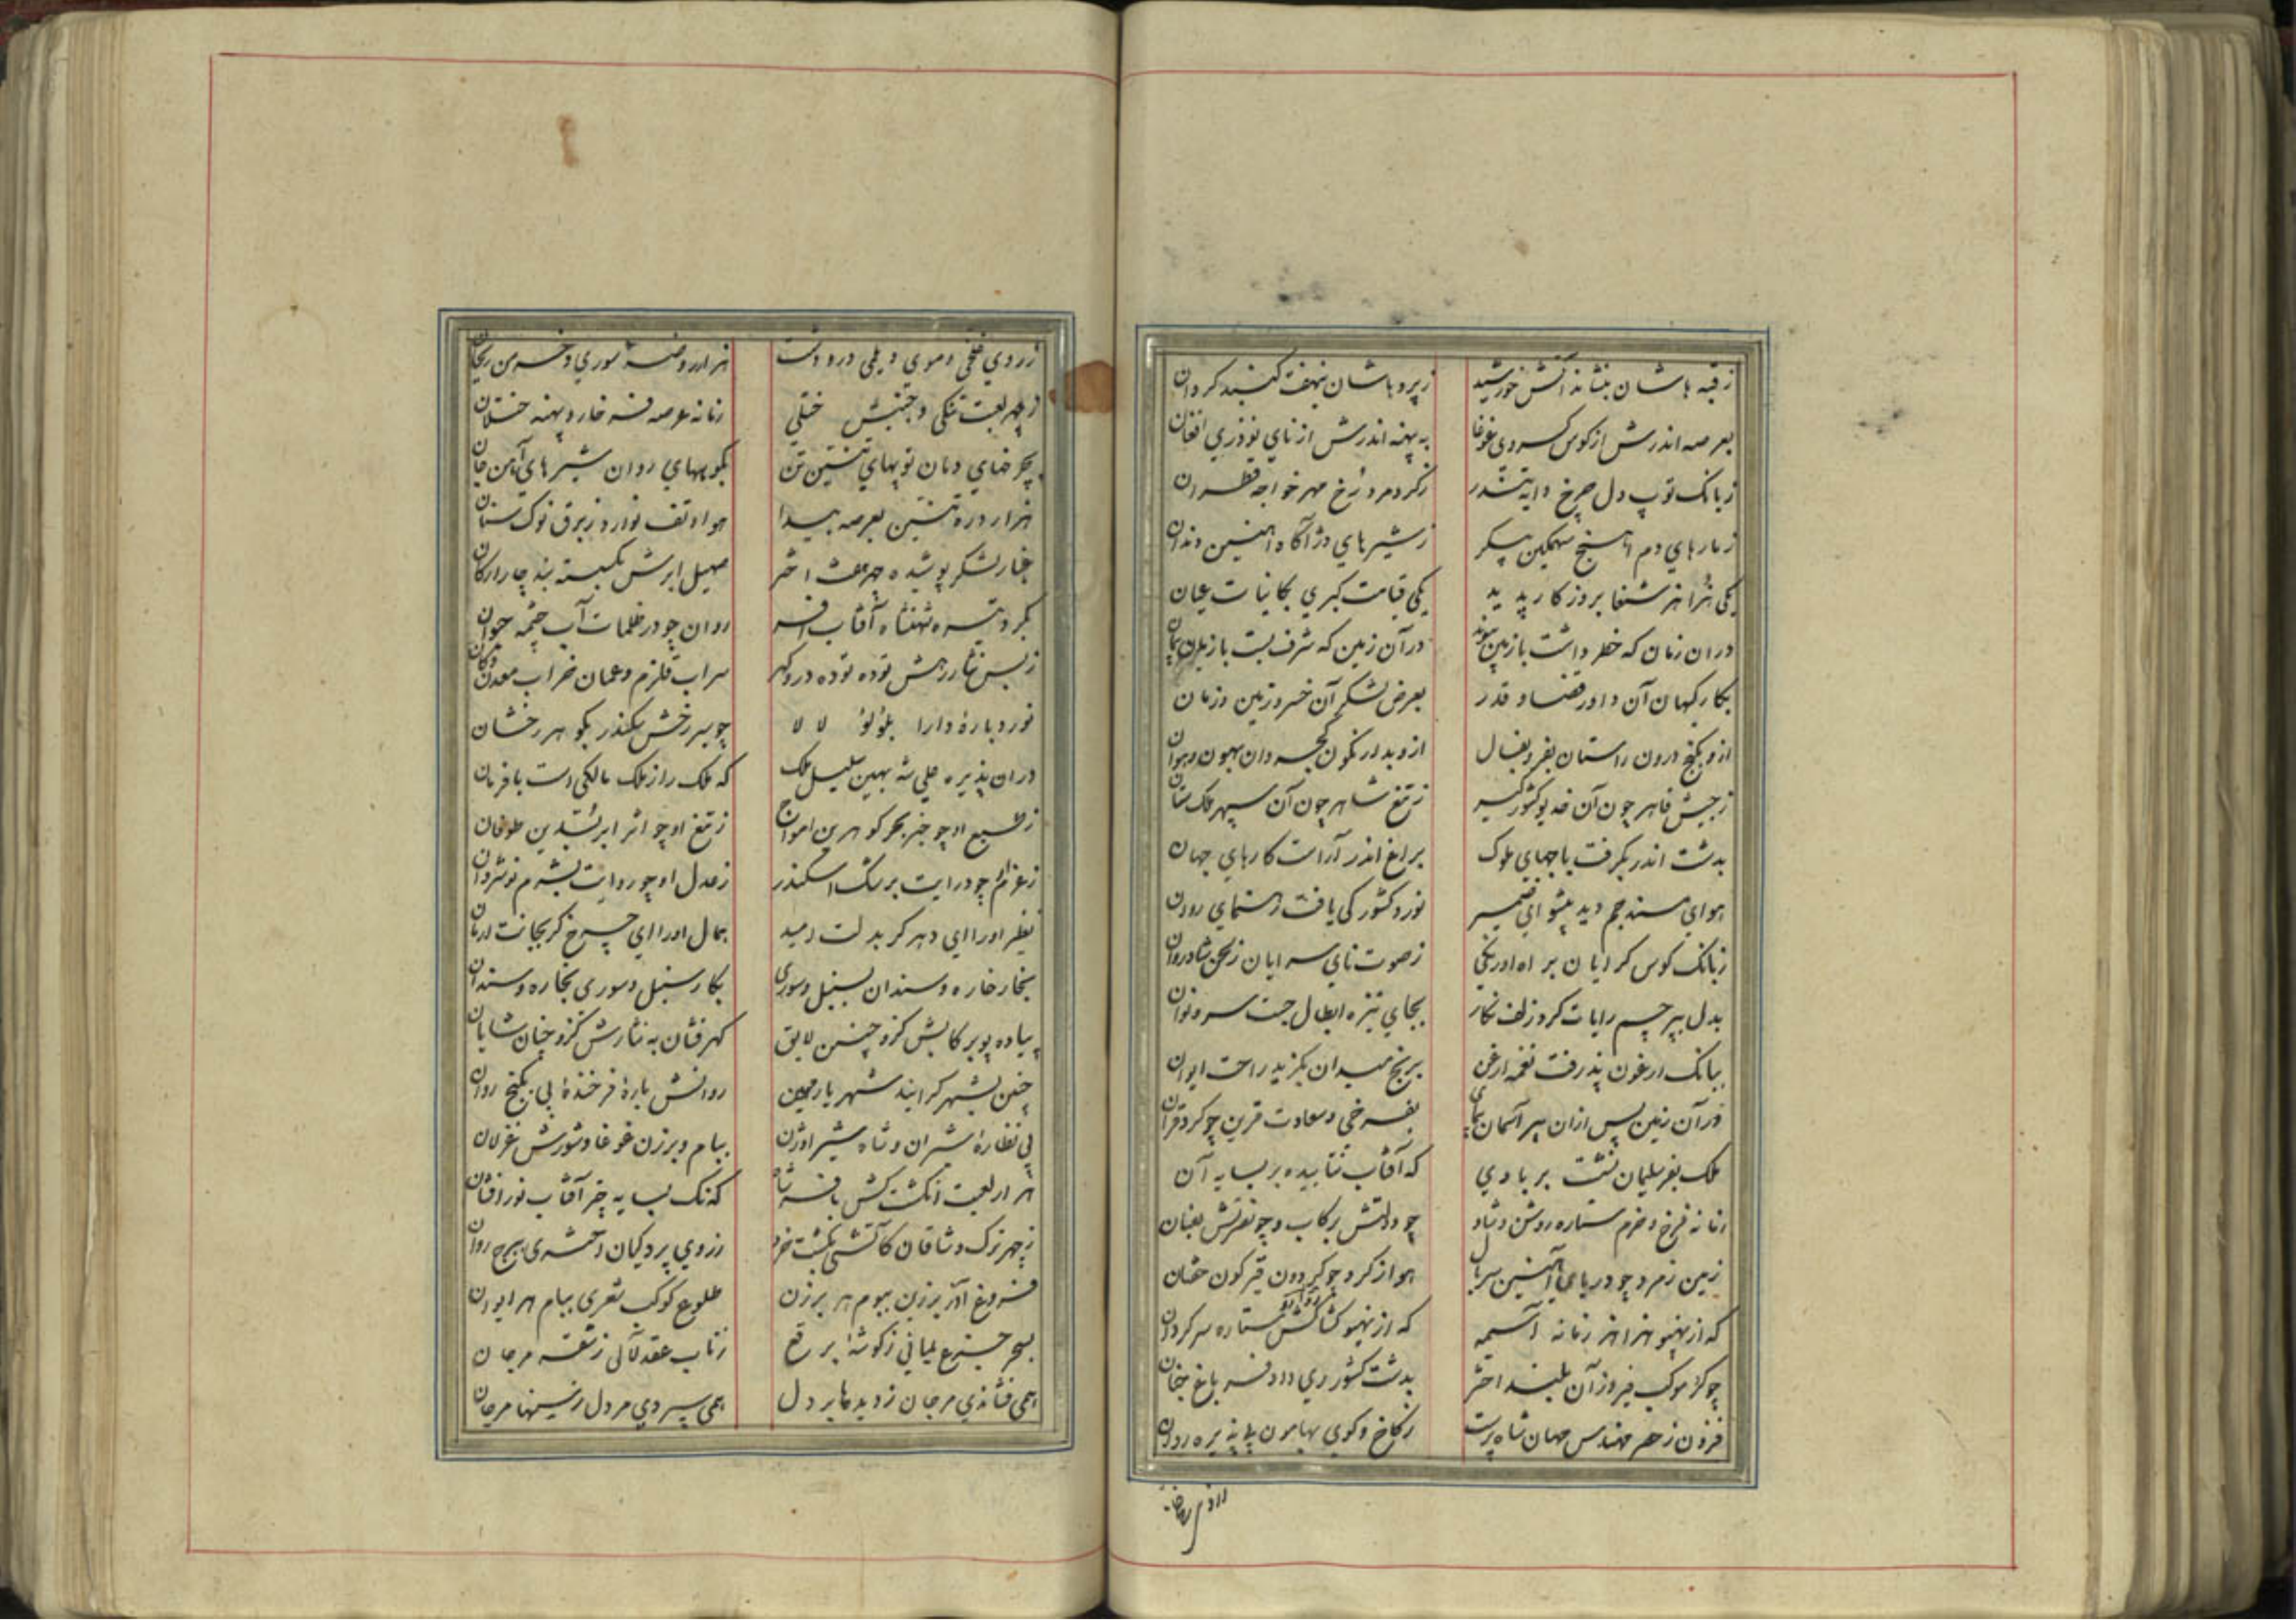 زقبه باشان بنشاند آتش خورشید زپرده باشان نهفت گنبد گردان
بعرصه اندرش از کوس کسروی غوغا به پهنه اندرش از نای نوذری افغان
زبانک توپ دل چرخ زکرد مرد رخ مهر خواجه قطران
زمارهای دم آهنج سهمکین پیکر زشیرهای دژآگاه آهنین دندان
یکی هزاهز شنعا بروزکار پدید یکی قیامت کبری بکاینات عیان
دران زمان که خطر داشت بازمین پیوند درآن زمین که شرف بست بازمان پیمان
بکار کیهان آن داور قضا و قدر بعرض لشکر آن خسرو زمین و زمان
ازو بکنج درون راستان بفر و بفال ازو بدار نکون
زجیش قاهر چون آن خدیو کشورکیر زتیغ شاهر چون آن سپهر ملک ستان
بدشت اندر بکرفت باجهای ملوک براغ اندر آراست کارهای جهان
هوای مسند جم دید پیشوای ضمیر نورد کشور کی یافت رهنمای روان
زبانک کوس کرایان براه اورنکی زصوت نای سرایان زلحن شادروان
بدل بپرچم رایات کرد زلف نکار بجای نیزه ابطال جست سرو نوان
ببانک ارغون پذرفت نغمه ارغن برنج میدان بکزید راحت ایوان
درآن زمین پس ازان پیر آسمان پیمای بفرخی و سعادت قرین چو کرد قران
ملک بفر سلیمان نشست بر بادی که آفتاب نتابیده بر بسایه آن
زمانه فرخ و خرم ستاره روشن و شاد چو دولتش برکاب و چو نصرتش بعنان
زمین زمرد چو دریای آهنین سربال هوا زکرد چو کردون قیرکون خفتان
که از نهیو هزاهز زمانه آسیمه که از نهیو کشاکش ستاره سرکردان
چو کرد موکب فیروز آن بلند اختر بدشت کشور ری داد فر باغ جنان
فزون زحصر مهندس جهان شاه پرست زکاخ و کوی بهامون پذیره روان
زروی خلخی و موی دیلمی در و دشت هزار روضه سوری و خرمن ریحان
زچهر لعبت تنکی و جنبش ختلی زمانه عرصه فرخار و پهنه ختلان
بچرخهای دمان توپهای تنین تن بکوههای روان شیرهای آهن جان
هزار دره تنین بعرصه پیدا هوا و تف نوار و زبرق نوک سنان
غبار لشکر پوشیده چهر هفت اختر صهیل ابرش بکسسته بند چار ارکان
بکرد تیره شهنشاه آفتاب افسر روان چو در ظلمات آب چشمه حیوان
زبس نثار رهش توده توده در و کهر سراب قلزم و عمان خراب معدن و کان
نورد باره دارا بلؤلؤ لالا چو بر رخش سکندر بکوهر رخشان
دران پذیره علی شه بهین سلیل ملک که ملک را زملک مالکی است با فرمان
زطبع او چو خبر بحر کوهرین امواج زتیغ او چو اثر ابر بسدین طوفان
زعزم او چو درایت برشک اسکندر زعدل او چو روایت بشرم نوشروان
نظیر او را ای دهر کر بدلت امید همال او را ای چرخ کر بجانت ارمان
بخار خاره و سندان بسنبل و سوری بکار سنبل و سوری بخاره و سندان
پیاده پوی برکابش کزو چنین لایق کهرفشان به نثارش کزو چنان شایان
چنین بشهر کرایید شهریار مهین روانش باره فرخنده پی بکنج روان
پی نظاره شیران و شاه شیر اوژن ببام و برزن غوغا و شورش غزلان
هزار لعبت انکشت کش بافسر شاه که نک بسایه چتر آفتاب نورافشان
زچهر ترک وشاقان کآتشی بکشت خرد زروی پردکیان مشتری ببرج روان
فروغ آذر برزین ببوم هر برزن طلوع کوکب شعری ببام هر ایوان
بسحر جزع یمانی زکوشه برقع زتاب عقد لآلی زشقه مرجان
همی فشاندی مرجان زدیدها بر دل همی سپردی مر دل زسینها مرجان